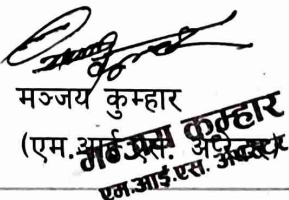 मञ्जय कुम्हार
(एम.आई.एस. अपरेटर)
मञ्जय कुम्हार
एम.आई.एस. अपरेटर